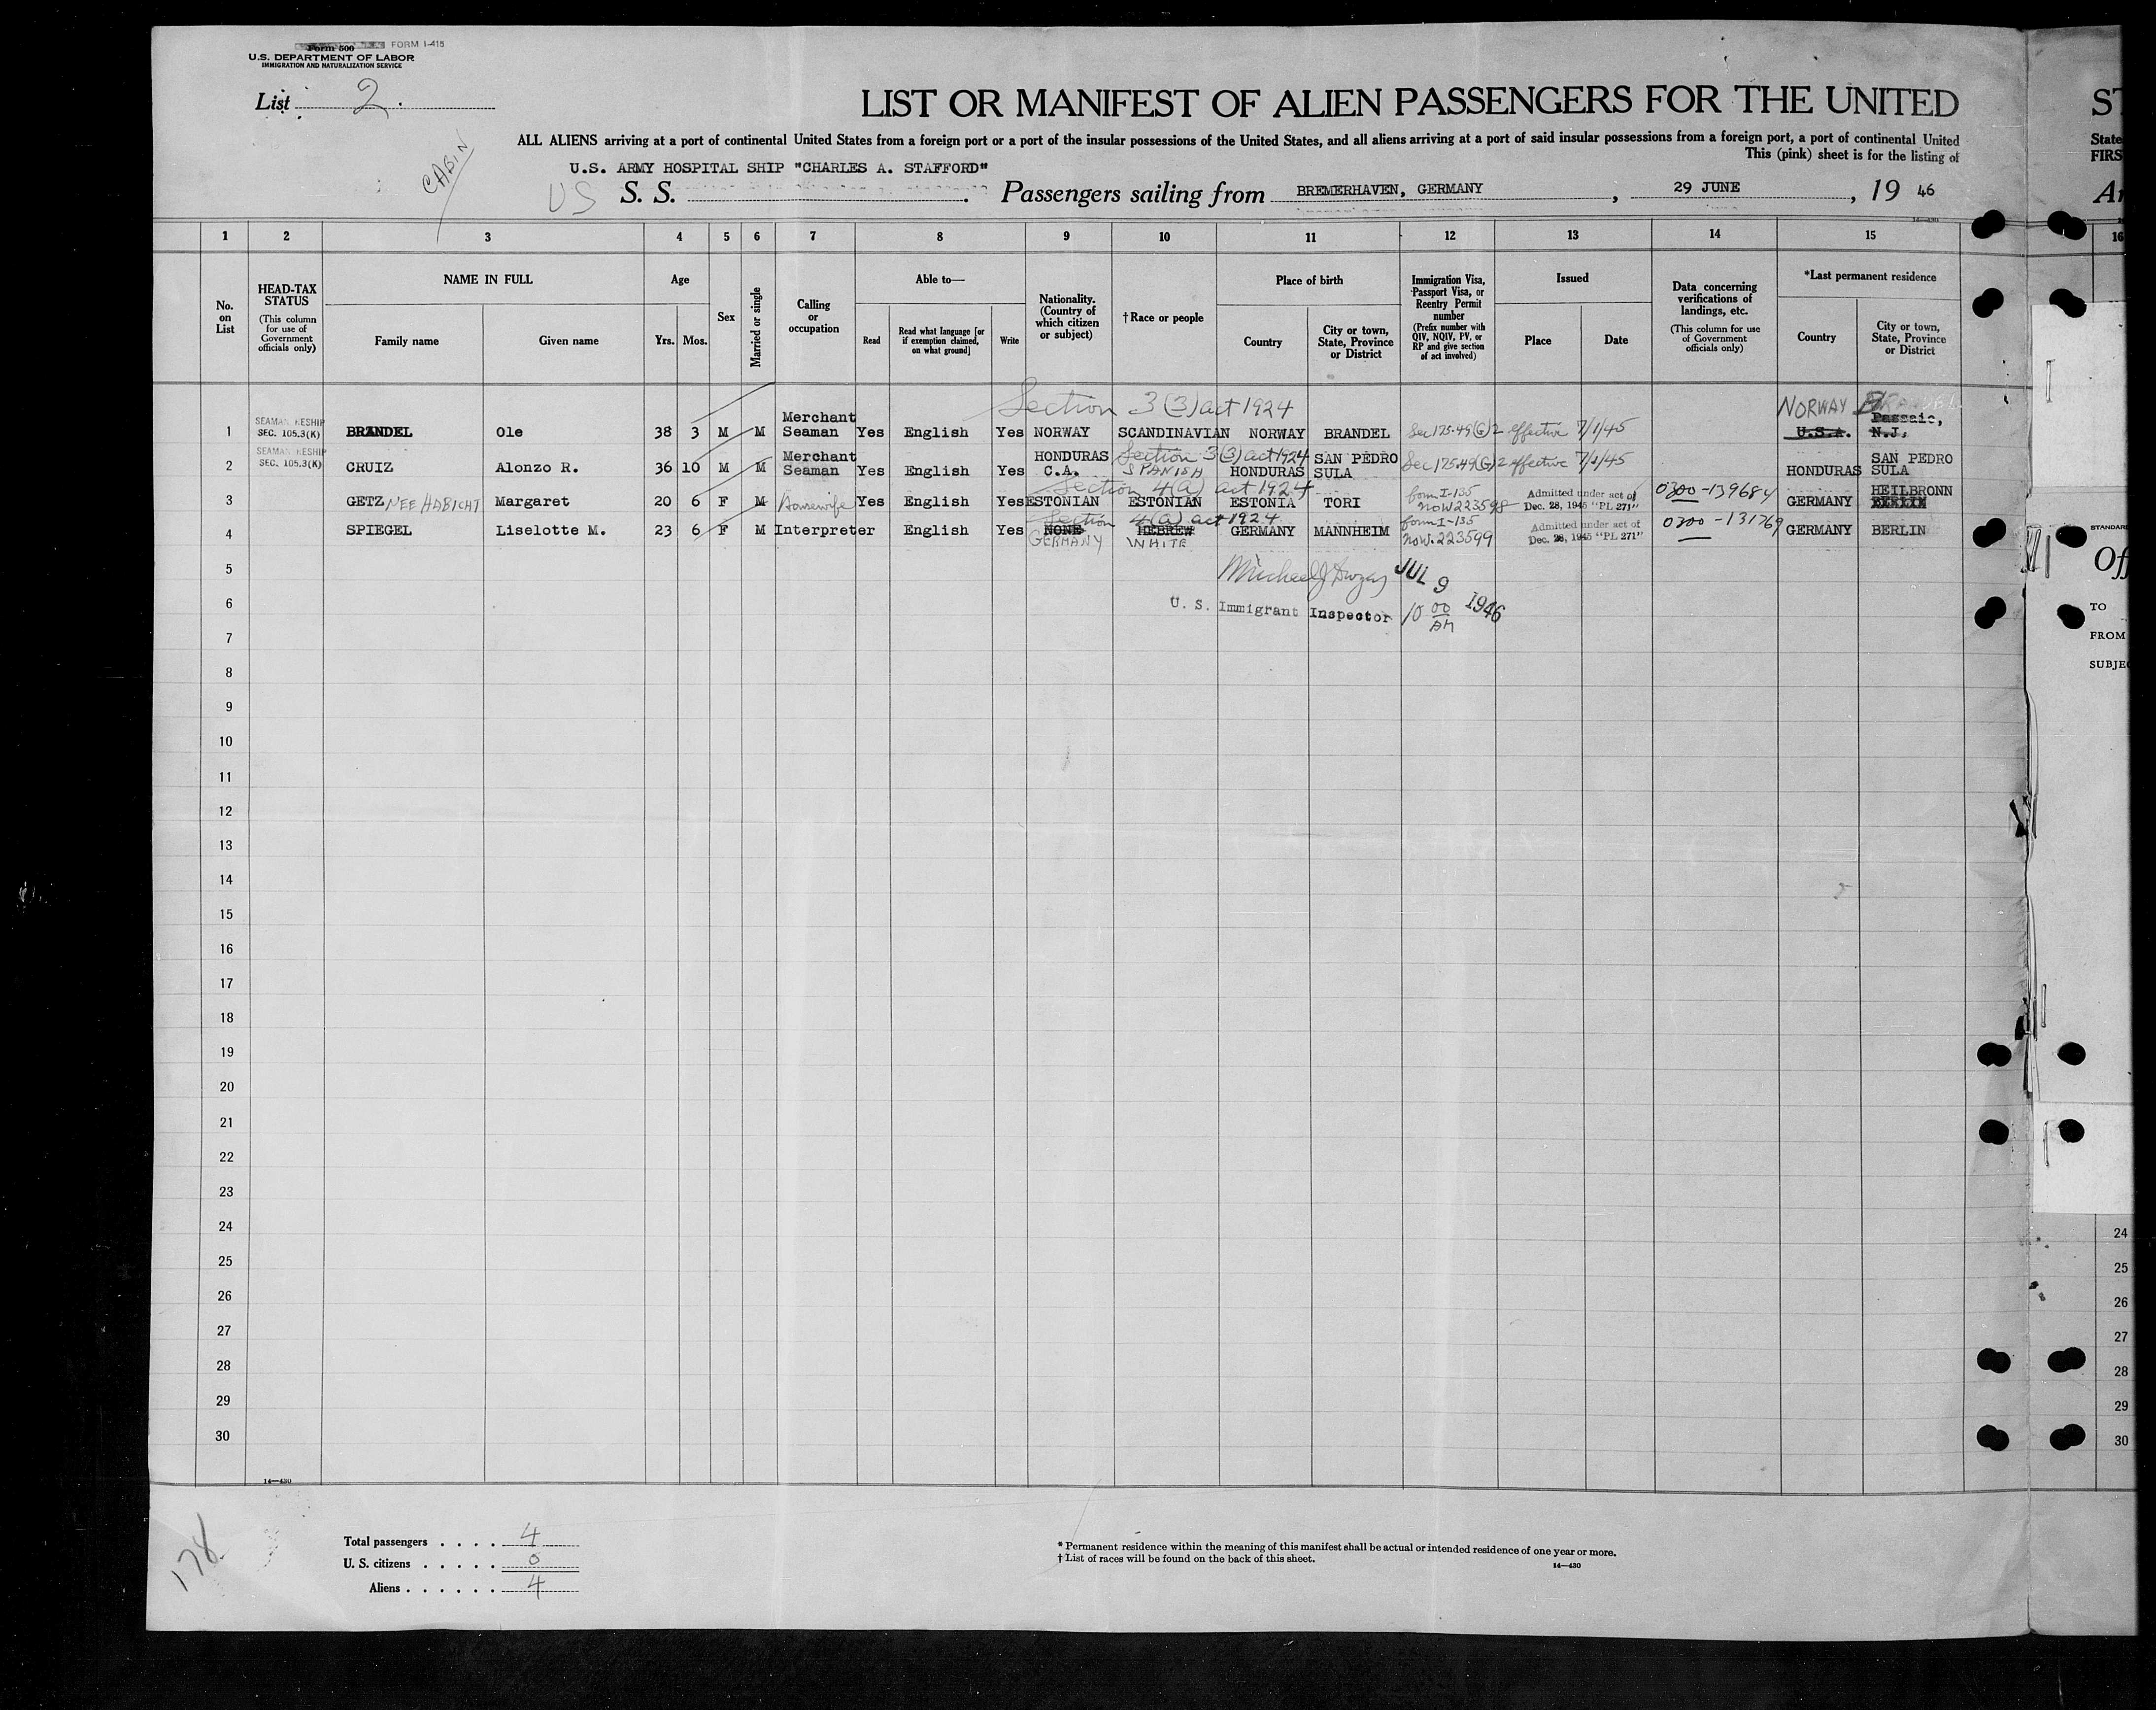 Form 500 FORM I-415
U.S. DEPARTMENT OF LABOR
IMMIGRATION AND NATURALIZATION SERVICE
List 2.
CABIN
LIST OR MANIFEST OF ALIEN PASSENGERS FOR THE UNITED
ALL ALIENS arriving at a port of continental United States from a foreign port or a port of the insular possessions of the United States, and all aliens arriving at a port of said insular possessions from a foreign port, a port of continental United
This (pink) sheet is for the listing of
U.S. ARMY HOSPITAL SHIP "CHARLES A. STAFFORD"
US S. S. Passengers sailing from BREMERHAVEN, GERMANY, 29 JUNE, 19 46
1 2 3 4 5 6 7 8 9 10 11 12 13 14 15
No. on List
HEAD-TAX STATUS (This column for use of Government officials only)
NAME IN FULL
Family name Given name
Age
Yrs. Mos.
Sex
Married or single
Calling or occupation
Able to—
Read Read what language [or if exemption claimed, on what ground] Write
Nationality. (Country of which citizen or subject)
†Race or people
Place of birth
Country City or town, State, Province or District
Immigration Visa, Passport Visa, or Reentry Permit number (Prefix number with QIV, NQIV, PV, or RP and give section of act involved)
Issued
Place Date
Data concerning verifications of landings, etc. (This column for use of Government officials only)
*Last permanent residence
Country City or town, State, Province or District
Section 3(3) act 1924 NORWAY BRANDEL
1 SEAMAN RESHIP SEC. 105.3(K) BRANDEL Ole 38 3 M M Merchant Seaman Yes English Yes NORWAY SCANDINAVIAN NORWAY BRANDEL Sec 175.49(G)2 effective 7/1/45 U.S.A. Passaic, N.J.
Section 3(3) act 1924
2 SEAMAN RESHIP SEC. 105.3(K) CRUIZ Alonzo R. 36 10 M M Merchant Seaman Yes English Yes HONDURAS C.A. SPANISH HONDURAS SAN PEDRO SULA Sec 175.49(G)2 effective 7/1/45 HONDURAS SAN PEDRO SULA
Section 4(a) act 1924
3 GETZ NEE HABICHT Margaret 20 6 F M Housewife Yes English Yes ESTONIAN ESTONIAN ESTONIA TORI form I-135 now 223598 Admitted under act of Dec. 28, 1945 "PL 271" 0300-139684 GERMANY HEILBRONN BERLIN
Section 4(a) act 1924
4 SPIEGEL Liselotte M. 23 6 F M Interpreter English Yes NONE GERMANY HEBREW WHITE GERMANY MANNHEIM form I-135 now. 223599 Admitted under act of Dec. 28, 1945 "PL 271" 0300-131769 GERMANY BERLIN
5 JUL 9 1946
6 U. S. Immigrant Inspector 10 00 AM
7
8
9
10
11
12
13
14
15
16
17
18
19
20
21
22
23
24
25
26
27
28
29
30
14—430
178
Total passengers . . . . 4
U. S. citizens . . . . . 0
Aliens . . . . . . 4
* Permanent residence within the meaning of this manifest shall be actual or intended residence of one year or more.
† List of races will be found on the back of this sheet.
14—430
ST
State
FIRS
16
STANDARD
Off
TO
FROM
SUBJE
24
25
26
27
28
29
30